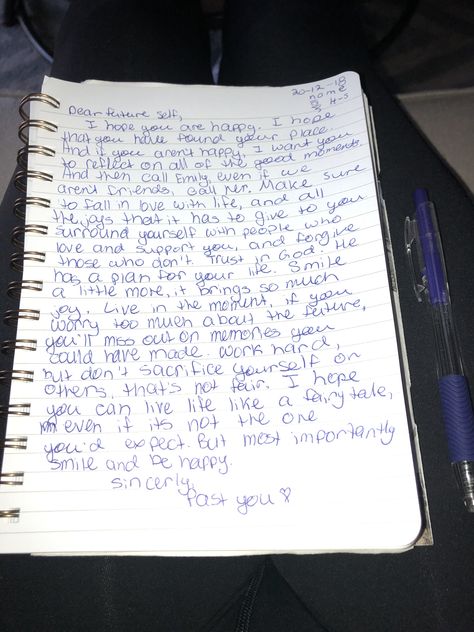 20-12-18
name
H-S
Dear future self,
I hope you are happy. I hope
that you have found your place.
And if you aren't happy, I want you
to reflect on all of the good moments.
And then call Emily, even if we
aren't friends, call her. Make sure
to fall in love with life, and all
the joys that it has to give to you
surround yourself with people who
love and support you, and forgive
those who don't. Trust in God. He
has a plan for your life. Smile
a little more, it brings so much
joy. Live in the moment, if you
worry too much about the future,
you'll miss out on memories you
could have made. Work hard,
but don't sacrifice yourself on
others, that's not fair. I hope
you can live life like a fairytale,
even if its not the one
you'd expect. But most importantly
smile and be happy.
sincerly,
Past you